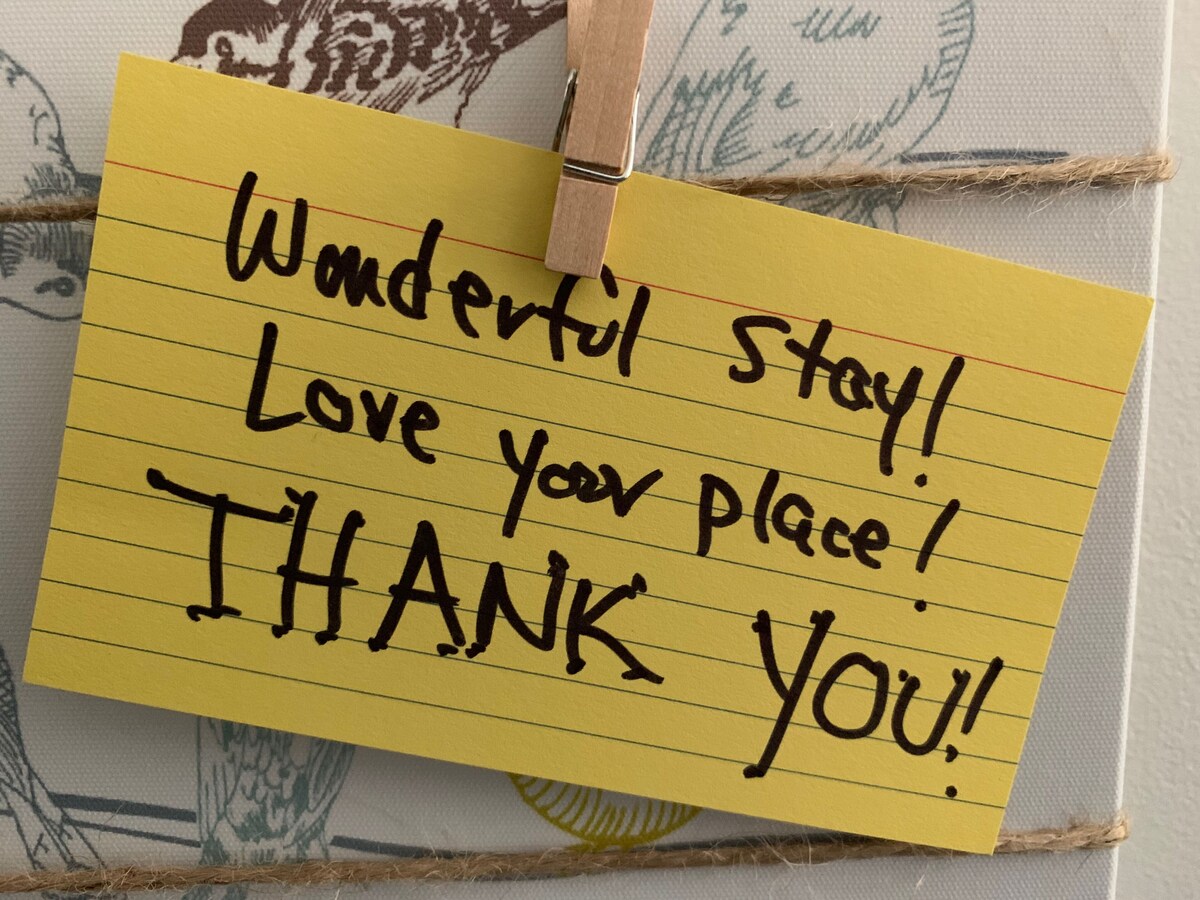 Wonderful stay!
Love your place!
THANK YOU!